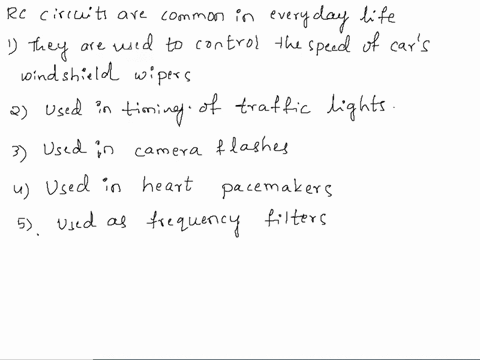 RC circuits are common in everyday life
1) They are used to control the speed of car's
windshield wipers
2) Used in timing of traffic lights.
3) Used in camera flashes
4) Used in heart pacemakers
5). Used as frequency filters